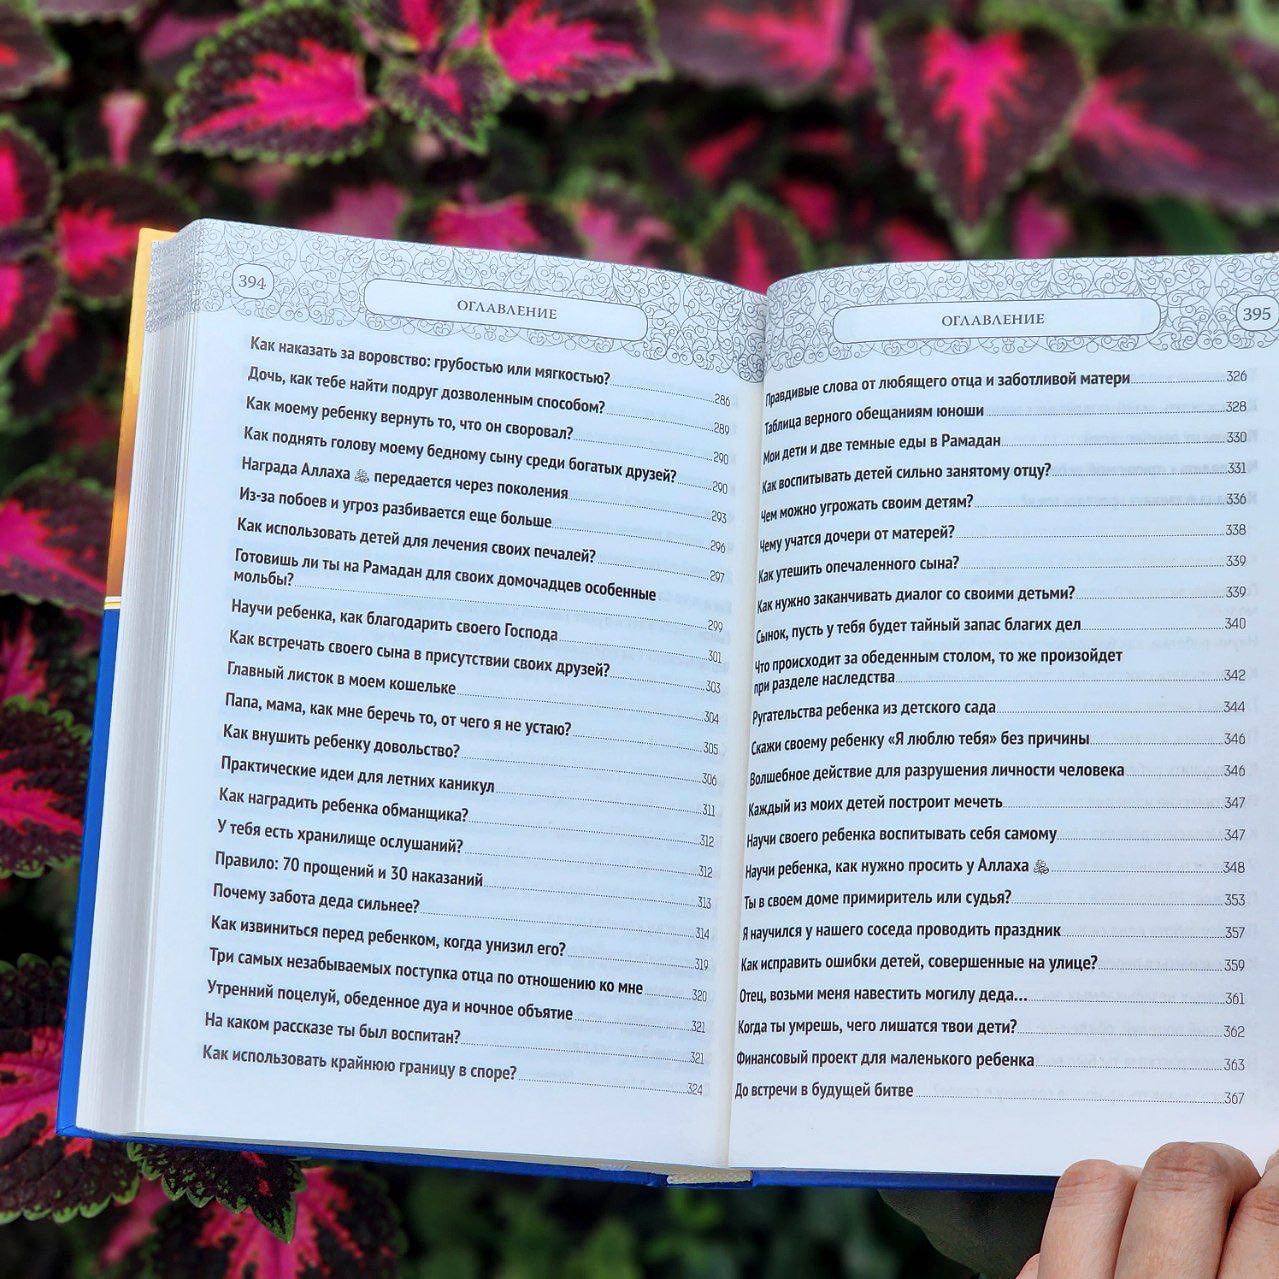 394
ОГЛАВЛЕНИЕ
Как наказать за воровство: грубостью или мягкостью? 286
Дочь, как тебе найти подруг дозволенным способом? 289
Как моему ребенку вернуть то, что он своровал? 290
Как поднять голову моему бедному сыну среди богатых друзей? 290
Награда Аллаха ﷻ передается через поколения 293
Из-за побоев и угроз разбивается еще больше 296
Как использовать детей для лечения своих печалей? 297
Готовишь ли ты на Рамадан для своих домочадцев особенные
мольбы? 299
Научи ребенка, как благодарить своего Господа 301
Как встречать своего сына в присутствии своих друзей? 303
Главный листок в моем кошельке 304
Папа, мама, как мне беречь то, от чего я не устаю? 305
Как внушить ребенку довольство? 306
Практические идеи для летних каникул 311
Как наградить ребенка обманщика? 312
У тебя есть хранилище ослушаний? 312
Правило: 70 прощений и 30 наказаний 313
Почему забота деда сильнее? 314
Как извиниться перед ребенком, когда унизил его? 319
Три самых незабываемых поступка отца по отношению ко мне 320
Утренний поцелуй, обеденное дуа и ночное объятие 321
На каком рассказе ты был воспитан? 321
Как использовать крайнюю границу в споре? 324
ОГЛАВЛЕНИЕ
395
Правдивые слова от любящего отца и заботливой матери 326
Таблица верного обещаниям юноши 328
Мои дети и две темные еды в Рамадан 330
Как воспитывать детей сильно занятому отцу? 331
Чем можно угрожать своим детям? 336
Чему учатся дочери от матерей? 338
Как утешить опечаленного сына? 339
Как нужно заканчивать диалог со своими детьми? 339
Сынок, пусть у тебя будет тайный запас благих дел 340
Что происходит за обеденным столом, то же произойдет
при разделе наследства 342
Ругательства ребенка из детского сада 344
Скажи своему ребенку «Я люблю тебя» без причины 346
Волшебное действие для разрушения личности человека 346
Каждый из моих детей построит мечеть 347
Научи своего ребенка воспитывать себя самому 347
Научи ребенка, как нужно просить у Аллаха ﷻ 348
Ты в своем доме примиритель или судья? 353
Я научился у нашего соседа проводить праздник 357
Как исправить ошибки детей, совершенные на улице? 359
Отец, возьми меня навестить могилу деда... 361
Когда ты умрешь, чего лишатся твои дети? 362
Финансовый проект для маленького ребенка 363
До встречи в будущей битве 367